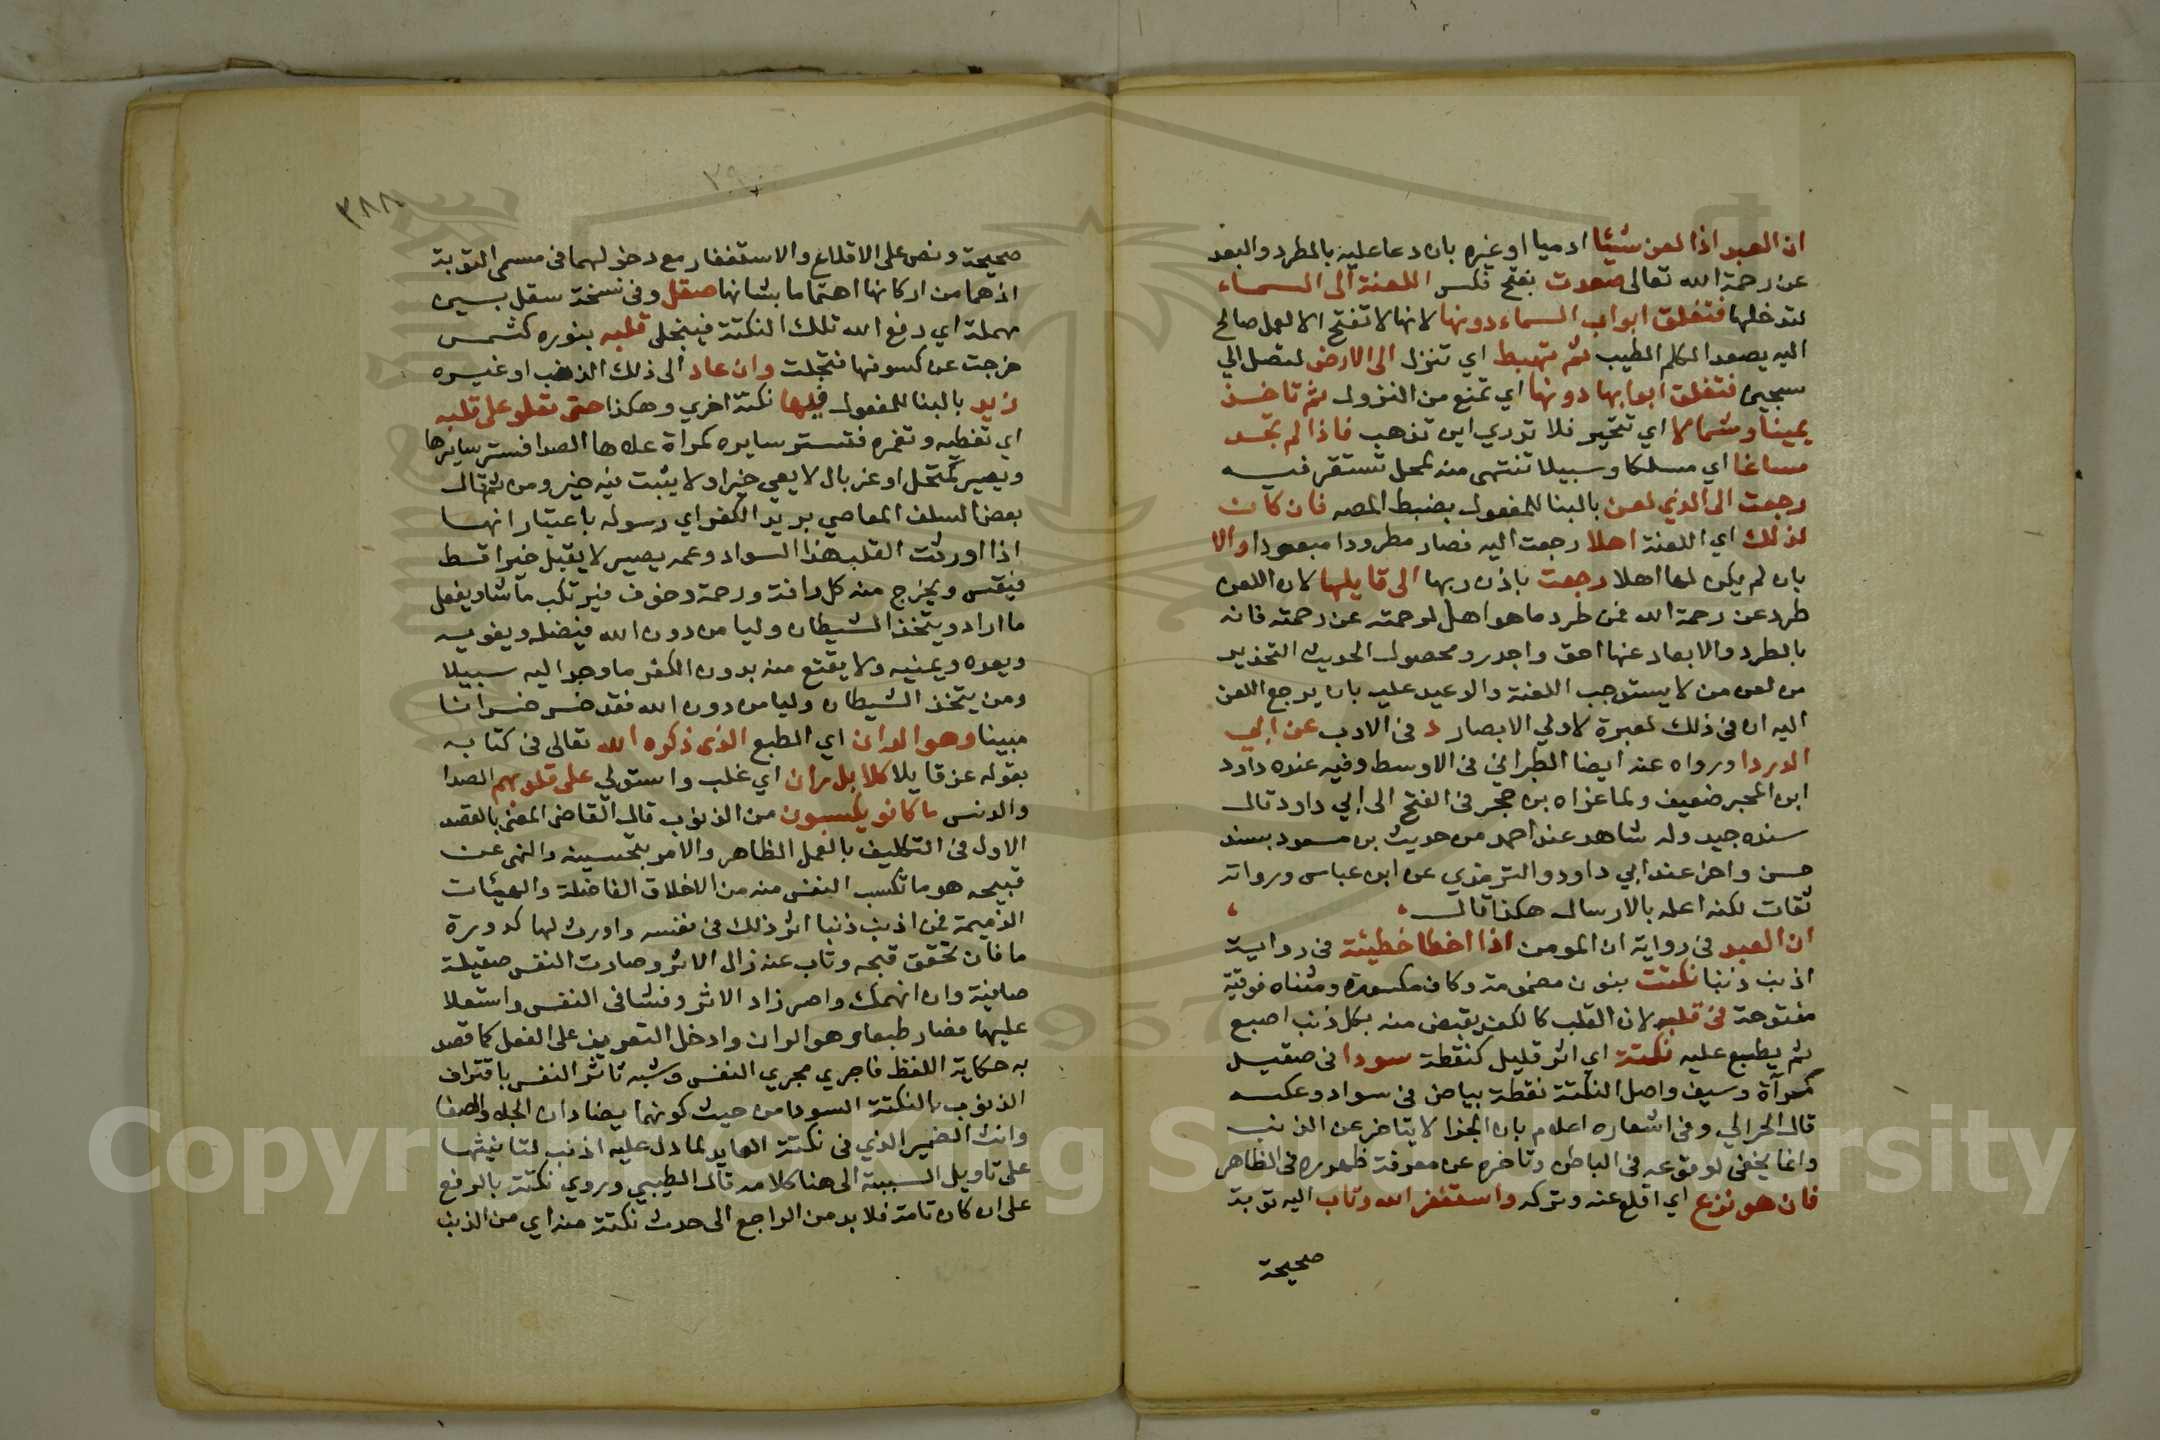 ان العبد اذا لعن شيئا ادميا او غيره بان دعا عليه بالطرد والبعد
عن رحمة الله تعالى صعدت بفتح فكسر اللعنة الى السماء
لتدخلها فتغلق ابواب السماء دونها لانها لا تفتح الا لعمل صالح
اليه يصعد الكلم الطيب ثم تهبط اي تنزل الى الارض لتصل الي
سجين فتغلق ابوابها دونها اي تمنع من النزول ثم تاخذ
يمينا وشمالا اي تتحير فلا تدري اين تذهب فاذا لم تجد
مساغا اي مسلكا وسبيلا تنتهى منه لمحل تستقر فيه
رجعت الى الذي لعن بالبنا للمفعول بضبط المص فان كان
لذلك اي اللعنة اهلا رجعت اليه فصار مطرودا مبعودا والا
بان لم يكن لها اهلا رجعت باذن ربها الى قايلها لان اللعن
طرد عن رحمة الله فمن طرد ما هو اهل لرحمته عن رحمته فانه
بالطرد والابعاد عنها احق واجدر ومحصول الحديث التحذير
من لعن من لا يستوجب اللعنة والوعيد عليه بان يرجع اللعن
اليه ان في ذلك لعبرة لاولي الابصار د في الادب عن ابي
الدردا ورواه عنه ايضا الطبراني في الاوسط وفيه عنده داود
ابن المحبر ضعيف ولما عزاه بن حجر في الفتح الى ابي داود قال
سنده جيد وله شاهد عند احمد من حديث بن مسعود بسند
حسن واخر عند ابي داود والترمذي عن ابن عباس ورواته
ثقات لكنه اعله بالارسال هكذا قال
ان العبد في رواية ان المومن اذا اخطا خطيئة في رواية
اذنب ذنبا نكتت بنون مضمومة وكاف مكسورة ومثناه فوقية
مفتوحة في قلبه لان القلب كالكف يقبض منه بكل ذنب اصبع
ثم يطبع عليه نكتة اي اثر قليل كنقطة سودا في صقيل
كمرآة وسيف واصل النكتة نقطة بياض في سواد وعكسه
قال الحرالي وفي اشعاره اعلام بان الجزا لا يتاخر عن الذنب
وانما يخفى لوقوعه في الباطن وتاخره عن معرفة ظهوره في الظاهر
فان هو نزع اي اقلع عنه وتركه واستغفر الله وتاب اليه توبة
صحيحة
٣٨٨
٣٩٠
صحيحة ونص على الاقلاع والاستغفار مع دخولهما في مسمى التوبة
اذ هما من اركانها اهتماما بشانها صقل وفي نسخة سقل بسين
مهملة اي رفع الله تلك النكتة فينجلى قلبه بنوره كشمس
خرجت عن كسوفها فتجلت وان عاد الى ذلك الذنب او غيره
زيد بالبنا للمفعول فيها نكتة اخري وهكذا حتى تعلو على قلبه
اي تغطيه وتغمره فتستر سايره كمرآة علاها الصدا فستر سايرها
ويصير كمنخل او غربال لا يعي خيرا ولا يثبت فيه خير ومن ثم قال
بعض السلف المعاصي بريد الكفر اي رسوله باعتبار انها
اذا اورثت القلب هذا السواد وعمه يصير لا يقبل خيرا قط
فيقسى ويخرج منه كل رافة ورحمة وخوف فيرتكب ما شا ويفعل
ما اراد ويتخذ الشيطان وليا من دون الله فيضله ويغويه
ويعده ويمنيه ولا يقنع منه بدون الكفر ما وجد اليه سبيلا
ومن يتخذ الشيطان وليا من دون الله فقد خسر خسرانا
مبينا وهو الران اي الطبع الذي ذكره الله تعالى في كتابه
بقوله عز قايلا كلا بل ران اي غلب واستولي على قلوبهم الصدا
والدنس ما كانو يكسبون من الذنوب قال القاضى المعنى بالقصد
الاول في التكليف بالعمل الظاهر والامر بتحسينه والنهى عن
قبيحه هو ما تكسب النفس منه من الاخلاق الفاضلة والهيئات
الذميمة فمن اذنب ذنبا اثر ذلك في نفسه واورث لها كدورة
ما فان تحقق قبحه وتاب عنه زال الاثر وصارت النفس صقيلة
صافية وان انهمك واصر زاد الاثر وفشا في النفس واستعلا
عليها فصار طبعا وهو الران وادخل التعريف على الفعل كما قصد
به حكاية اللفظ فاجري مجري النفس وشبه تاثر النفس باقتراف
الذنوب بالنكتة السودا من حيث كونهما يضادان الجلا والصفا
وانث الضمير الذي في نكتة العايد لما دل عليه اذنب لتانيثها
على تاويل السيئة الى هنا كلامه قال الطيبي وروي نكتة بالرفع
على ان كان تامة فلا بد من الراجع الى حدث نكتة منه اي من الذنب
Copyright © King Saud University
1957